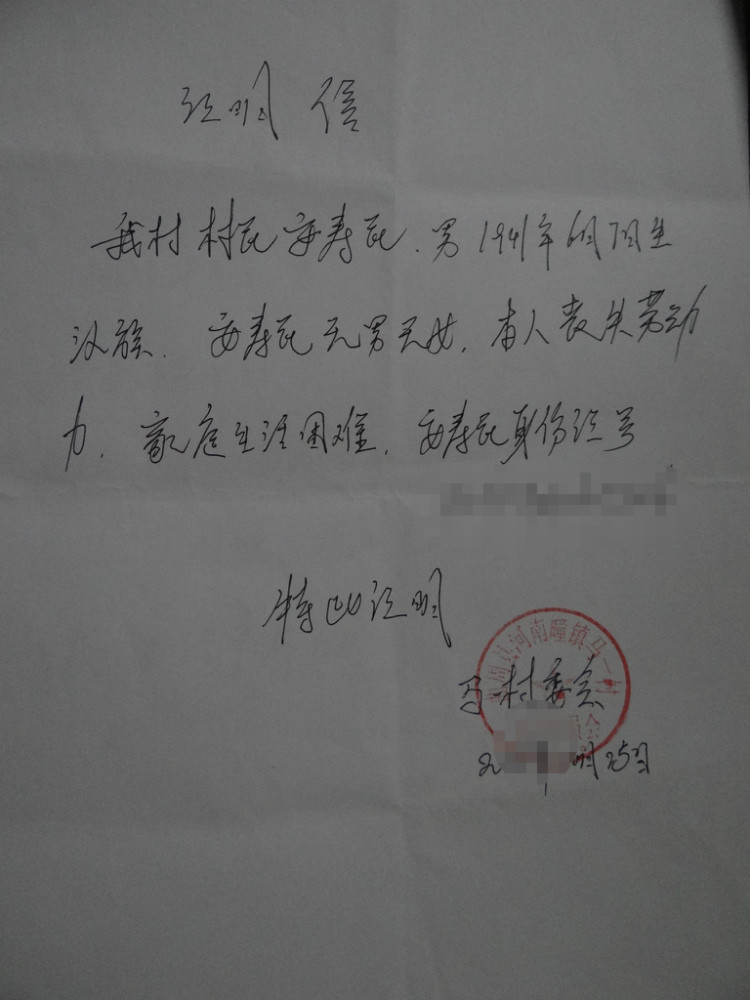 证明信
我村村民安寿民.男1941年6月7日生
汉族.安寿民无男无女,本人丧失劳动
力.家庭生活困难,安寿民身份证号
特此证明
河南疃镇马一村
马一村委会
月25日